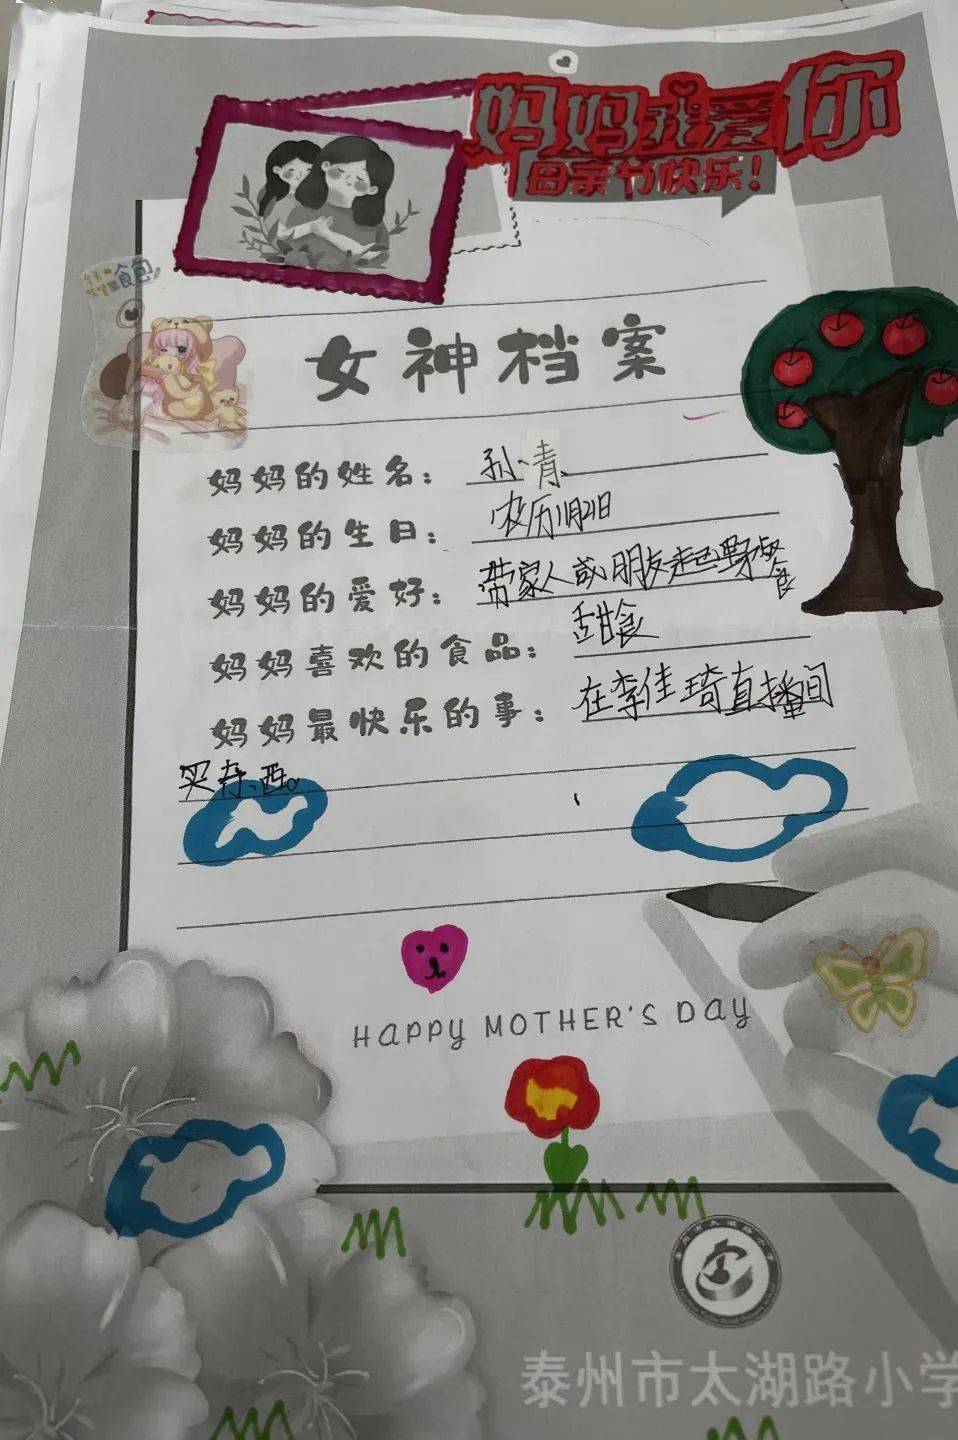 妈妈我爱你
母亲节快乐！
女神档案
妈妈的姓名：孙青
妈妈的生日：农历11月21日
妈妈的爱好：带家人或朋友起野餐
妈妈喜欢的食品：甜食
妈妈最快乐的事：在李佳琦直播间
买东西。
HAPPY MOTHER'S DAY
泰州市太湖路小学